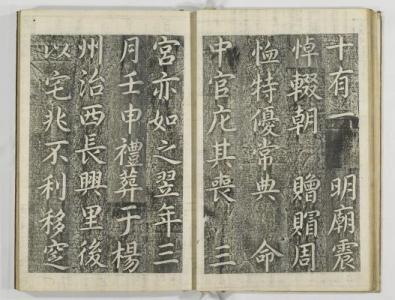 十有一 明廟震
悼輟朝 贈賵周
恤特優常典 命
中官庀其喪 三
宮亦如之翌年三
月壬申禮葬于楊
州治西長興里後
以宅兆不利移窆